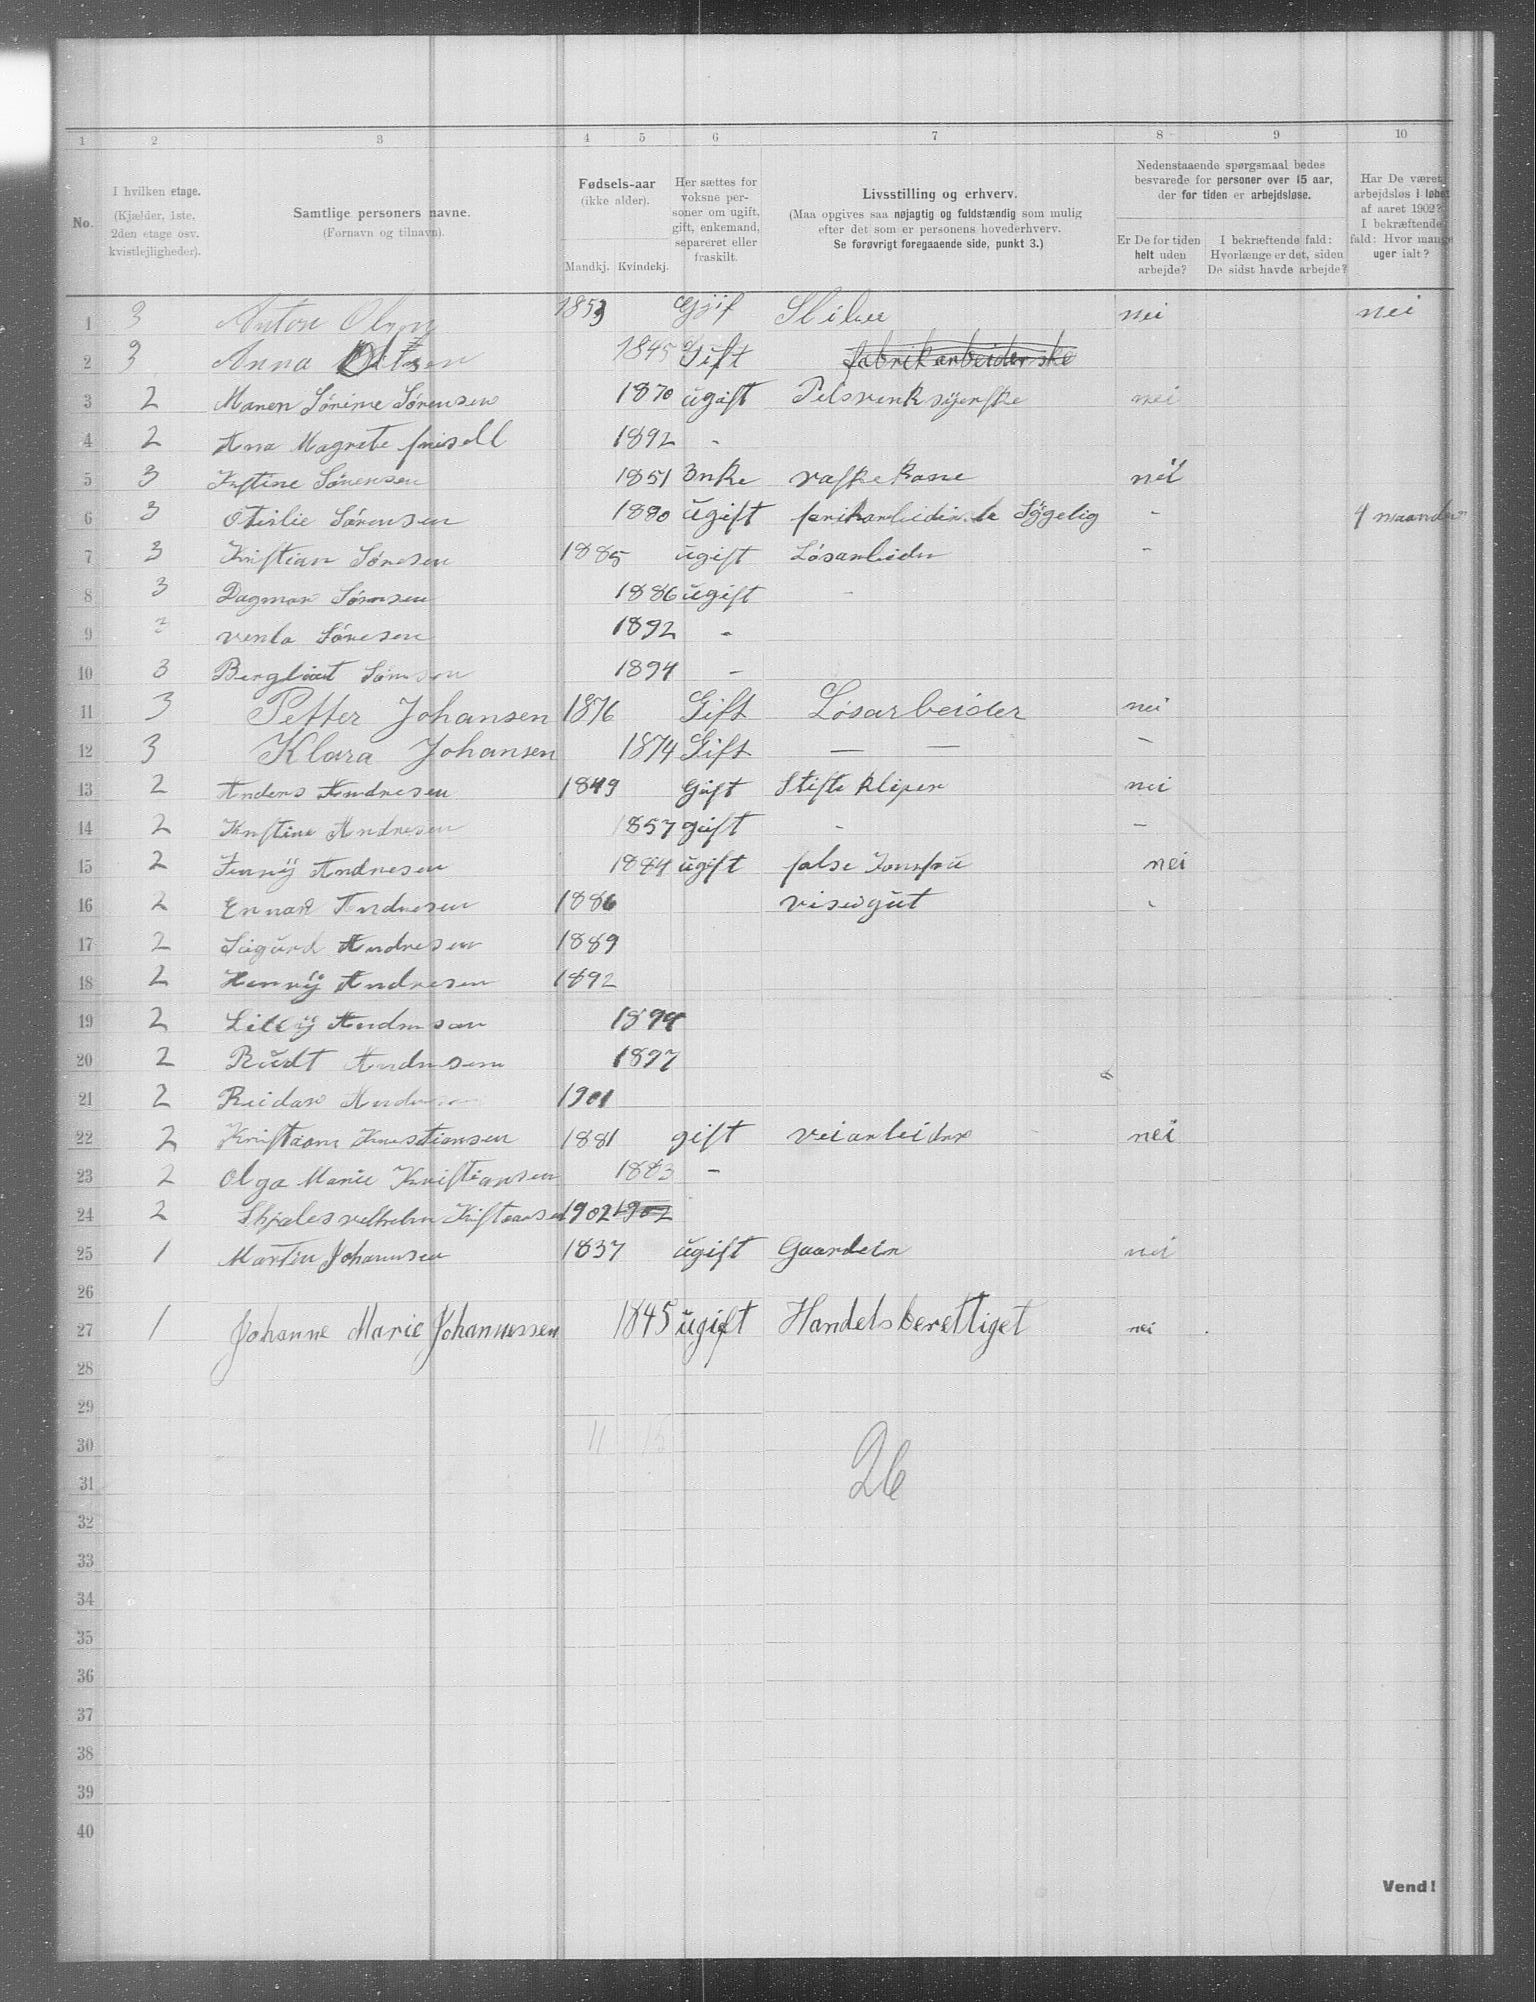 1 2 3 4 5 6 7 8 9 10
No.
I hvilken etage.
(Kjælder, 1ste,
2den etage osv.
kvistlejligheder).
Samtlige personers navne.
(Fornavn og tilnavn).
Fødsels-aar
(ikke alder).
Mandkj. Kvindekj.
Her sættes for
voksne per-
soner om ugift,
gift, enkemand,
separeret eller
fraskilt.
Livsstilling og erhverv.
(Maa opgives saa nøjagtig og fuldstændig som mulig
efter det som er personens hovederhverv.
Se forøvrigt foregaaende side, punkt 3.)
Nedenstaaende spørgsmaal bedes
besvarede for personer over 15 aar,
der for tiden er arbejdsløse.
Er De for tiden
helt uden
arbejde?
I bekræftende fald:
Hvorlænge er det, siden
De sidst havde arbejde?
Har De været
arbejdsløs i løbet
af aaret 1902?
I bekræftende
fald: Hvor mange
uger ialt?
1 3 Anton Olsen 1853 Gjif nei nei
2 3 Anna Olsen 1845 Gift fabrikarbeiderske
3 2 Maren Sørine Sørensen 1870 ugift Pelsverksyerske nei
4 2 Ana Magrete 1892 -
5 3 Sørensen 1851 Enke vaskekone nei
6 3 Otilie Sørensen 1880 ugift Sygelig - 4 maander
7 3 Kristian Søresen 1885 ugift Løsarbeider -
8 3 Dagmar Sørnsen 1886 ugift -
9 Søresen 1892 -
10 3 Bergliot Sørnsen 1894 -
11 3 Petter Johansen 1876 Gift Løsarbeider nei
12 3 Klara Johansen 1874 Gift — — -
13 2 Anders Andresen 1849 Gift Stiftekliper nei
14 2 Kristine Andresen 1857 gift - -
15 2 Jenny Andresen 1884 ugift false Jomfru nei
16 2 Ennar Andresen 1886 visergut -
17 2 Sigurd Andresen 1889
18 2 Henry Andresen 1892
19 2 Lilly Andresen 1894
20 2 Andresen 1897
21 2 Reidar 1901
22 2 Kristiansen 1881 gift veiarbeider nei
23 2 Olga Marie Kristiansen 1883 -
24 2 1902 1902
25 1 Martin Johannsen 1837 ugift Gaardeier nei
26
27 1 Johanne Marie Johannessen 1845 ugift Handelsberettiget nei
28
29
30 11 15
31 26
32
33
34
35
36
37
38
39
40
Vend!